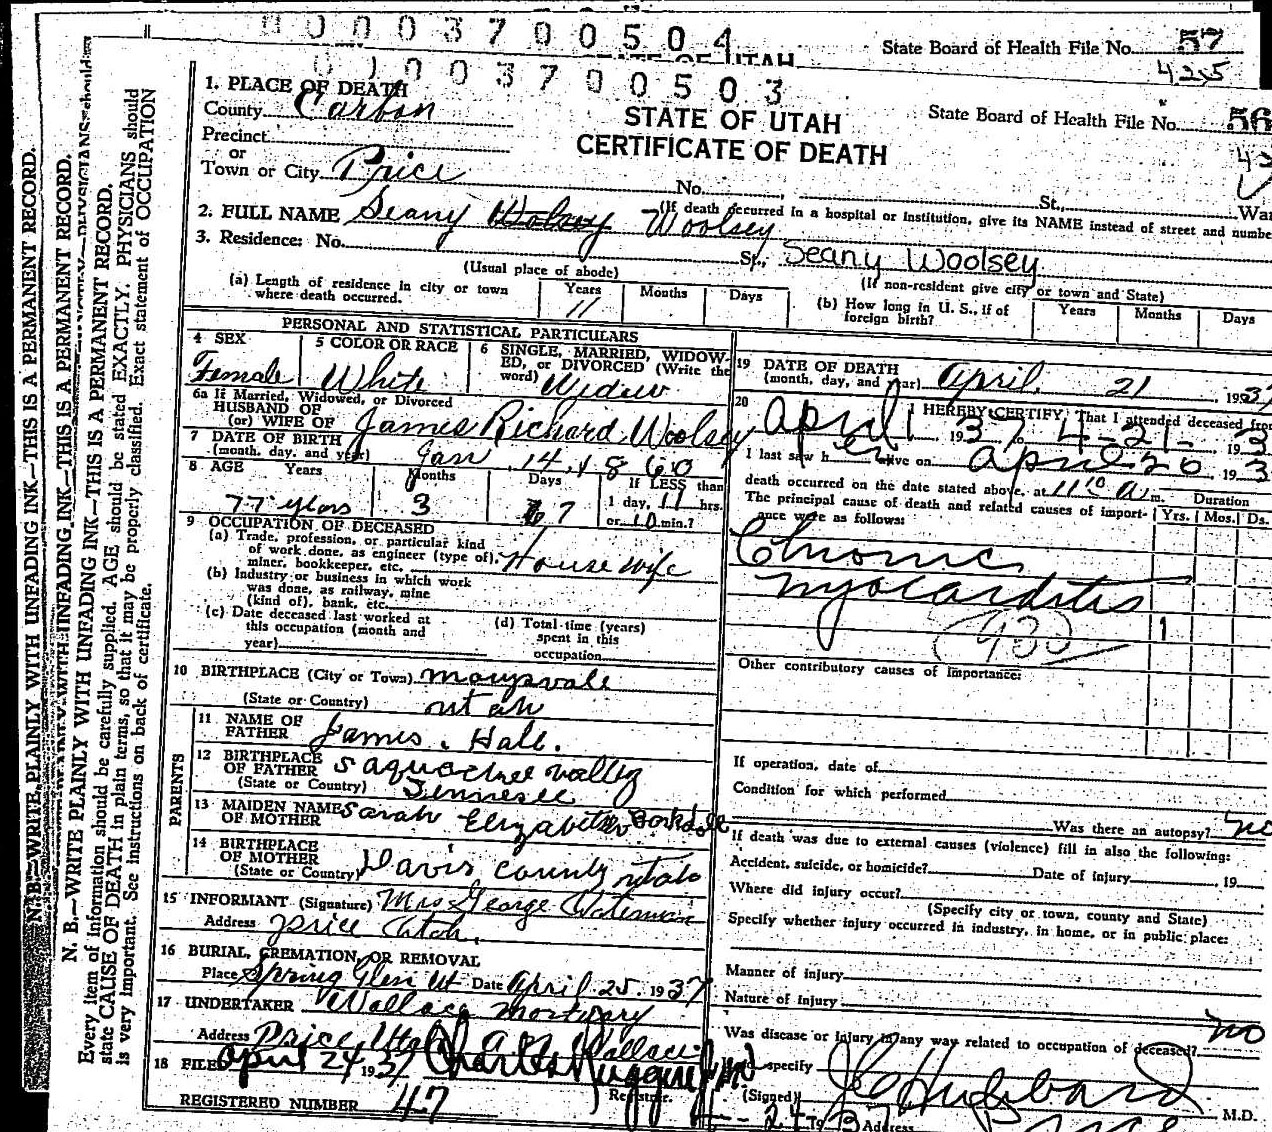 0003700504
STATE OF UTAH
State Board of Health File No. 57
425
0003700503
1. PLACE OF DEATH
County Carbon
STATE OF UTAH
State Board of Health File No. 56
Precinct
CERTIFICATE OF DEATH
or
Town or City Price No. St. War
(If death occurred in a hospital or institution, give its NAME instead of street and numbe
2. FULL NAME Seany Wolsey Woolsey
3. Residence: No. St., Seany Woolsey
(Usual place of abode) (If non-resident give city or town and State)
(a) Length of residence in city or town where death occurred. Years 11 Months Days
(b) How long in U. S., if of foreign birth? Years Months Days
PERSONAL AND STATISTICAL PARTICULARS
4 SEX Female
5 COLOR OR RACE White
6 SINGLE, MARRIED, WIDOWED, or DIVORCED (Write the word) Widow
6a If Married, Widowed, or Divorced
HUSBAND OF
(or) WIFE OF James Richard Woolsey
7 DATE OF BIRTH
(month, day, and year) Jan 14, 1860
8 AGE Years Months Days If LESS than
77 years 3 7 1 day, 11 hrs.
or 10 min.?
9 OCCUPATION OF DECEASED
(a) Trade, profession, or particular kind
of work done, as engineer (type of),
miner, bookkeeper, etc. Housewife
(b) Industry or business in which work
was done, as railway, mine
(kind of), bank, etc.
(c) Date deceased last worked at
this occupation (month and
year)
(d) Total time (years)
spent in this
occupation
10 BIRTHPLACE (City or Town) marysvale
(State or Country) utah
PARENTS
11 NAME OF
FATHER James. Hall.
12 BIRTHPLACE
OF FATHER Saquachee valley
(State or Country) Tennesee
13 MAIDEN NAME
OF MOTHER Sarah Elizabeth
14 BIRTHPLACE
OF MOTHER
(State or Country) Davis county utah
15 INFORMANT (Signature) Mrs George Waterman
Address Price Utah.
16 BURIAL, CREMATION, OR REMOVAL
Place Spring Glen Ut Date April 25, 1937
17 UNDERTAKER Wallace Mortuary
Address Price Utah Wallace
18 FILED April 24 1937 Charles Ruggeri Jr MD
Registrar.
REGISTERED NUMBER 47
19 DATE OF DEATH
(month, day, and year) April 21, 1937
20 I HEREBY CERTIFY, That I attended deceased from
April 1 1937 to 4-21- 193
I last saw her alive on april 20, 193
death occurred on the date stated above, at 11 10 a m. Duration
The principal cause of death and related causes of importance were as follows: Yrs. Mos. Ds.
Chronic
myocarditis
1
Other contributory causes of importance:
If operation, date of
Condition for which performed
Was there an autopsy? no
If death was due to external causes (violence) fill in also the following:
Accident, suicide, or homicide? Date of injury , 19
Where did injury occur?
(Specify city or town, county and State)
Specify whether injury occurred in industry, in home, or in public place:
Manner of injury
Nature of injury
Was disease or injury in any way related to occupation of deceased? no
specify
(Signed) Hubbard M.D.
Address
N.B.—WRITE PLAINLY WITH UNFADING INK—THIS IS A PERMANENT RECORD.
N. B.—WRITE PLAINLY WITH UNFADING INK—THIS IS A PERMANENT RECORD.
Every item of information should be carefully supplied. AGE should be stated EXACTLY. PHYSICIANS should
state CAUSE OF DEATH in plain terms, so that it may be properly classified. Exact statement of OCCUPATION
is very important. See instructions on back of certificate.